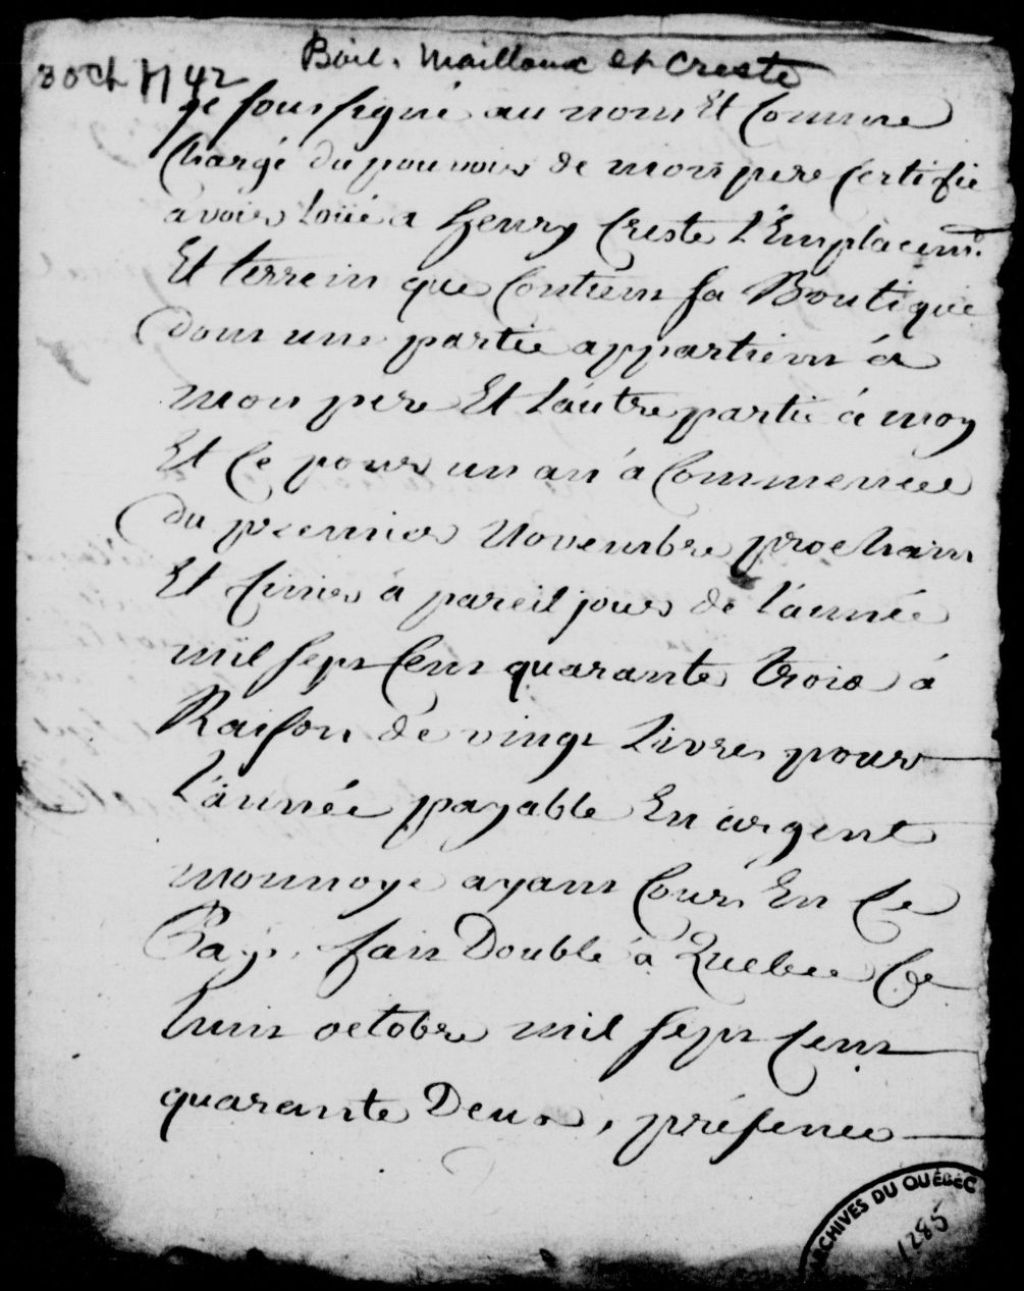 Bail. Mailloux et Creste
8 Oct 1742
Je sousigné au nom Et Comme
Chargé du pouvoir de mon pere Certifie
avoir Loüé a henry Creste L'Emplacemt.
Et terrein que Contien sa Boutique
dont une partie appartien á
mon pere Et L'autre partie á moy
Et Ce pour un an á Commencer
du premier Novembre prochain
Et finir á pareil jour de L'année
mil sept Cent quarante trois á
Raison de vingt Livres pour
L'année payable En argent
monnoye ayant Cours En Ce
Pays. fait Double á Quebec Ce
huit octobre mil sept Cent
quarante Deux, présence
ARCHIVES DU QUÉBEC
1285